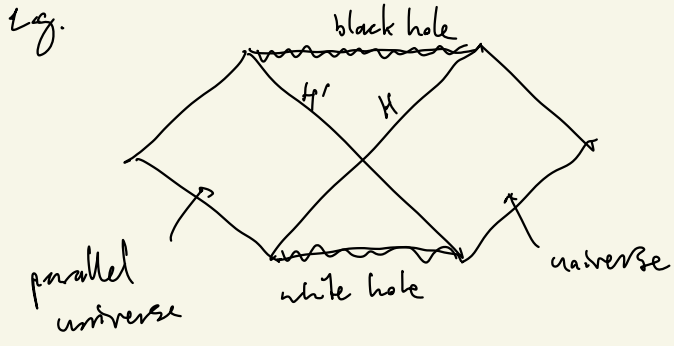 Eg.
black hole
H'
H
parallel
universe
white hole
universe